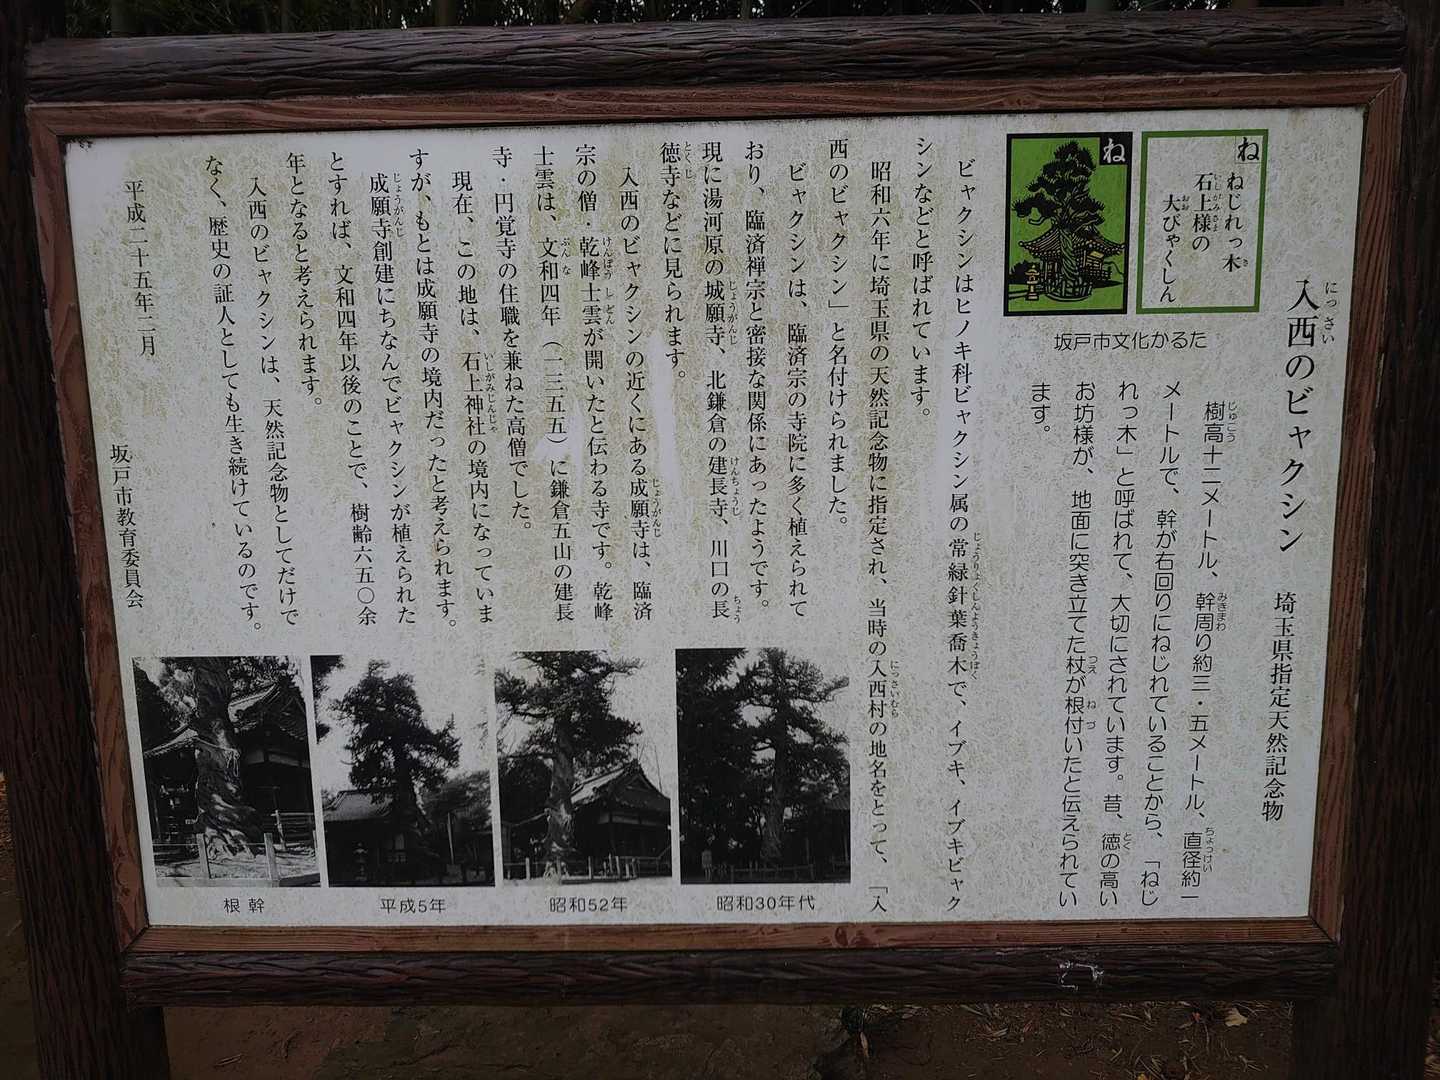 入西のビャクシン　埼玉県指定天然記念物
ね
ねじれっ木
石上様の
大びゃくしん
ね
坂戸市文化かるた
樹高十二メートル、幹周り約三・五メートル、直径約一
メートルで、幹が右回りにねじれていることから、「ねじ
れっ木」と呼ばれて、大切にされています。昔、徳の高い
お坊様が、地面に突き立てた杖が根付いたと伝えられてい
ます。
ビャクシンはヒノキ科ビャクシン属の常緑針葉喬木で、イブキ、イブキビャク
シンなどと呼ばれています。
昭和六年に埼玉県の天然記念物に指定され、当時の入西村の地名をとって、「入
西のビャクシン」と名付けられました。
ビャクシンは、臨済宗の寺院に多く植えられて
おり、臨済禅宗と密接な関係にあったようです。
現に湯河原の城願寺、北鎌倉の建長寺、川口の長
徳寺などに見られます。
入西のビャクシンの近くにある成願寺は、臨済
宗の僧・乾峰士雲が開いたと伝わる寺です。乾峰
士雲は、文和四年（一三五五）に鎌倉五山の建長
寺・円覚寺の住職を兼ねた高僧でした。
現在、この地は、石上神社の境内になっていま
すが、もとは成願寺の境内だったと考えられます。
成願寺創建にちなんでビャクシンが植えられた
とすれば、文和四年以後のことで、樹齢六五〇余
年となると考えられます。
入西のビャクシンは、天然記念物としてだけで
なく、歴史の証人としても生き続けているのです。
平成二十五年二月
坂戸市教育委員会
昭和30年代
昭和52年
平成5年
根幹